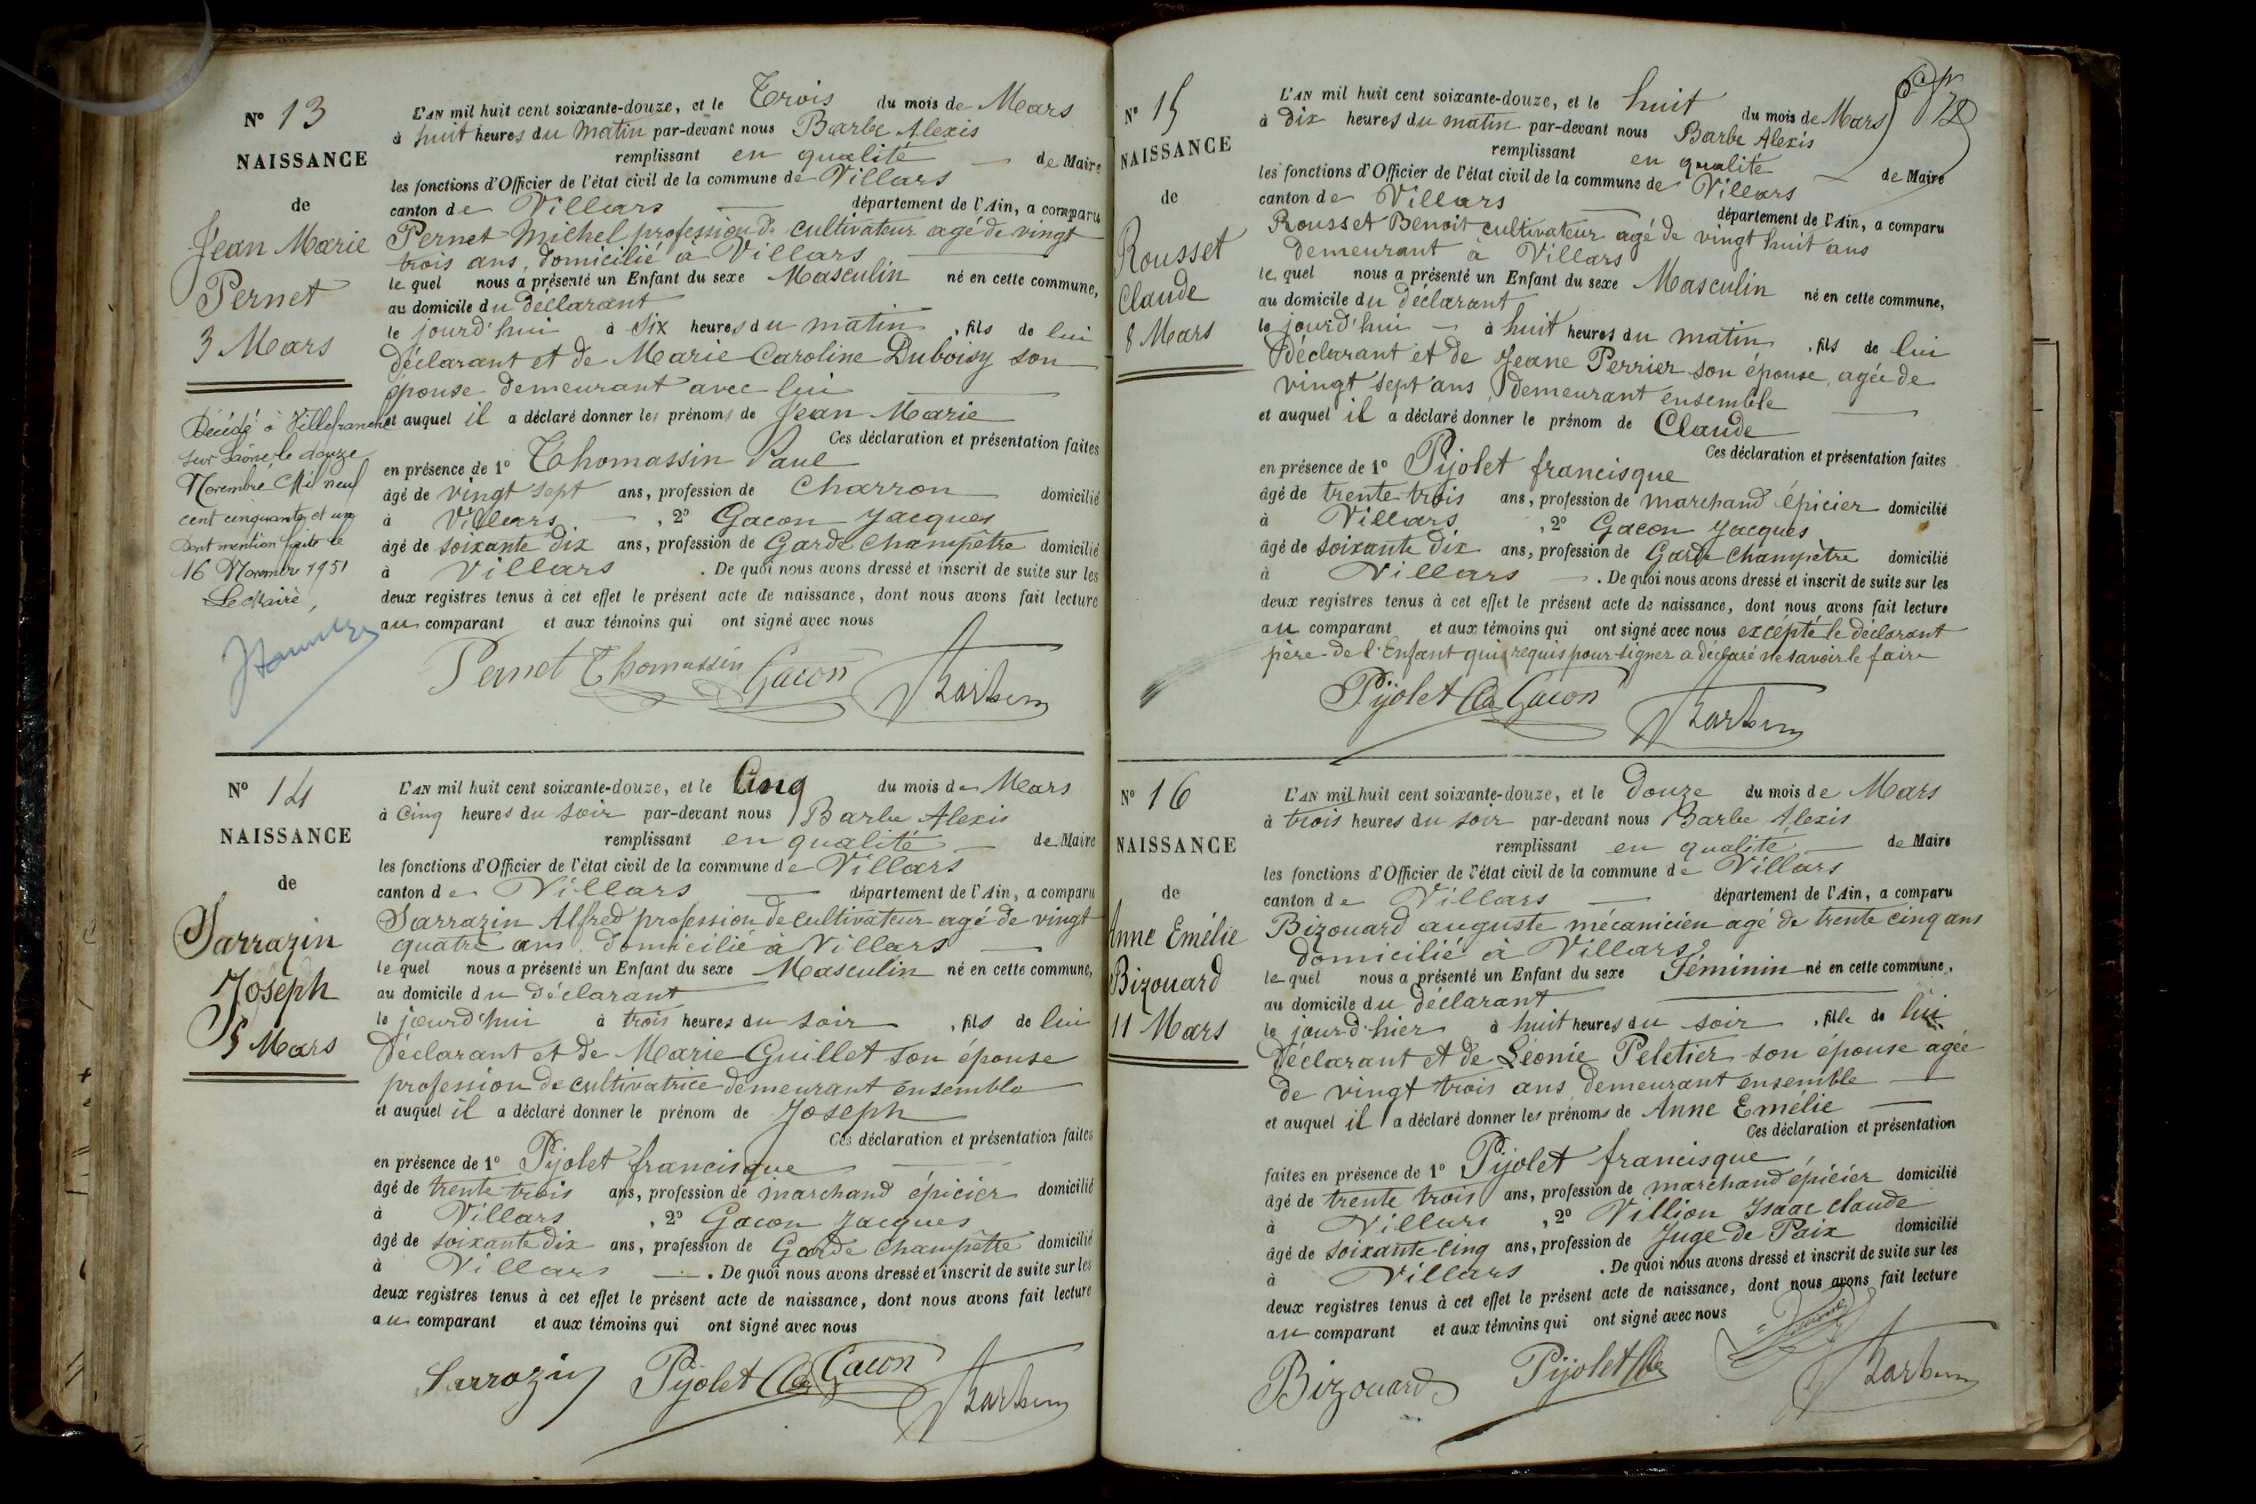 N° 13
NAISSANCE
de
Jean Marie
Pernet
3 Mars
Décédé à Villefranche
sur Saône le douze
Novembre Mil neuf
cent cinquante et un
Dont mention faite le
16 Novembre 1951
Le Maire,
L'AN mil huit cent soixante-douze, et le Trois du mois de Mars
à huit heures du matin par-devant nous Barbe Alexis
remplissant en qualité de Maire
les fonctions d'Officier de l'état civil de la commune de Villars
canton de Villars département de l'Ain, a comparu
Pernet Michel profession de cultivateur agé de vingt
trois ans, domicilié à Villars
le quel nous a présenté un Enfant du sexe Masculin né en cette commune,
au domicile du déclarant
le jourd'hui à Six heures du matin, fils de lui
déclarant et de Marie Caroline Duboisy son
épouse demeurant avec lui
et auquel il a déclaré donner les prénoms de Jean Marie
Ces déclaration et présentation faites
en présence de 1° Thomassin Paul
âgé de vingt sept ans, profession de Charron domicilié
à Villars, 2° Gacon Jacques
âgé de soixante dix ans, profession de Garde Champêtre domicilié
à Villars. De quoi nous avons dressé et inscrit de suite sur les
deux registres tenus à cet effet le présent acte de naissance, dont nous avons fait lecture
au comparant et aux témoins qui ont signé avec nous
Pernet Thomassin Gacon Barbe
N° 14
NAISSANCE
de
Sarrazin
Joseph
5 Mars
L'AN mil huit cent soixante-douze, et le Cinq du mois de Mars
à Cinq heures du soir par-devant nous Barbe Alexis
remplissant en qualité de Maire
les fonctions d'Officier de l'état civil de la commune de Villars
canton de Villars département de l'Ain, a comparu
Sarrazin Alfred profession de cultivateur agé de vingt
quatre ans domicilié à Villars
le quel nous a présenté un Enfant du sexe Masculin né en cette commune,
au domicile du déclarant
le jourd'hui à trois heures du soir, fils de lui
Déclarant et de Marie Guillet son épouse
profession de cultivatrice demeurant ensemble
et auquel il a déclaré donner le prénom de Joseph
Ces déclaration et présentation faites
en présence de 1° Pijolet francisque
âgé de trente trois ans, profession de marchand épicier domicilié
à Villars, 2° Gacon Jacques
âgé de soixante dix ans, profession de Garde Champêtre domicilié
à Villars. De quoi nous avons dressé et inscrit de suite sur les
deux registres tenus à cet effet le présent acte de naissance, dont nous avons fait lecture
au comparant et aux témoins qui ont signé avec nous
Sarrazin Pijolet Gacon Barbe
N° 15
NAISSANCE
de
Rousset
Claude
8 Mars
L'AN mil huit cent soixante-douze, et le huit du mois de Mars
à dix heures du matin par-devant nous Barbe Alexis
remplissant en qualité de Maire
les fonctions d'Officier de l'état civil de la commune de Villars
canton de Villars département de l'Ain, a comparu
Rousset Benoit cultivateur agé de vingt huit ans
demeurant à Villars
le quel nous a présenté un Enfant du sexe Masculin né en cette commune,
au domicile du déclarant
le jourd'hui à huit heures du matin, fils de lui
Déclarant et de Jeane Perrier son épouse, agée de
vingt sept ans, demeurant ensemble
et auquel il a déclaré donner le prénom de Claude
Ces déclaration et présentation faites
en présence de 1° Pijolet francisque
âgé de trente trois ans, profession de marchand épicier domicilié
à Villars, 2° Gacon Jacques
âgé de soixante dix ans, profession de Garde Champètre domicilié
à Villars. De quoi nous avons dressé et inscrit de suite sur les
deux registres tenus à cet effet le présent acte de naissance, dont nous avons fait lecture
au comparant et aux témoins qui ont signé avec nous excépté le déclarant
père de l'Enfant qui requis pour signer a déclaré ne savoir le faire
Pijolet Gacon Barbe
N° 16
NAISSANCE
de
Anne Emélie
Bizouard
11 Mars
L'AN mil huit cent soixante-douze, et le Douze du mois de Mars
à trois heures du soir par-devant nous Barbe Alexis
remplissant en qualité de Maire
les fonctions d'Officier de l'état civil de la commune de Villars
canton de Villars département de l'Ain, a comparu
Bizouard auguste mécanicien agé de trente cinq ans
domicilié à Villars
le quel nous a présenté un Enfant du sexe Féminin né en cette commune,
au domicile du déclarant
le jour d'hier à huit heures du soir, fille de lui
Déclarant et de Léonie Peletier son épouse agée
de vingt trois ans demeurant ensemble
et auquel il a déclaré donner les prénoms de Anne Emélie
Ces déclaration et présentation
faites en présence de 1° Pijolet francisque
âgé de trente trois ans, profession de marchand épicier domicilié
à Villars, 2° Villion Isaac Claude
âgé de soixante cinq ans, profession de Juge de Paix domicilié
à Villars. De quoi nous avons dressé et inscrit de suite sur les
deux registres tenus à cet effet le présent acte de naissance, dont nous avons fait lecture
au comparant et aux témoins qui ont signé avec nous
Bizouard Pijolet Barbe